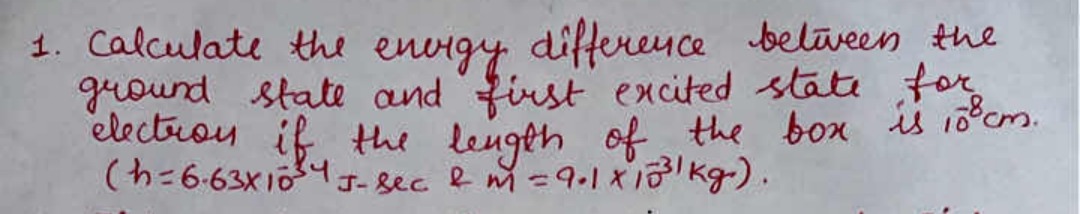 1. Calculate the energy difference between the
ground state and first excited state for
electron if the length of the box is 10⁻⁸cm.
(h=6.63X10⁻³⁴ J-sec & m =9.1 X 10⁻³¹ Kg).